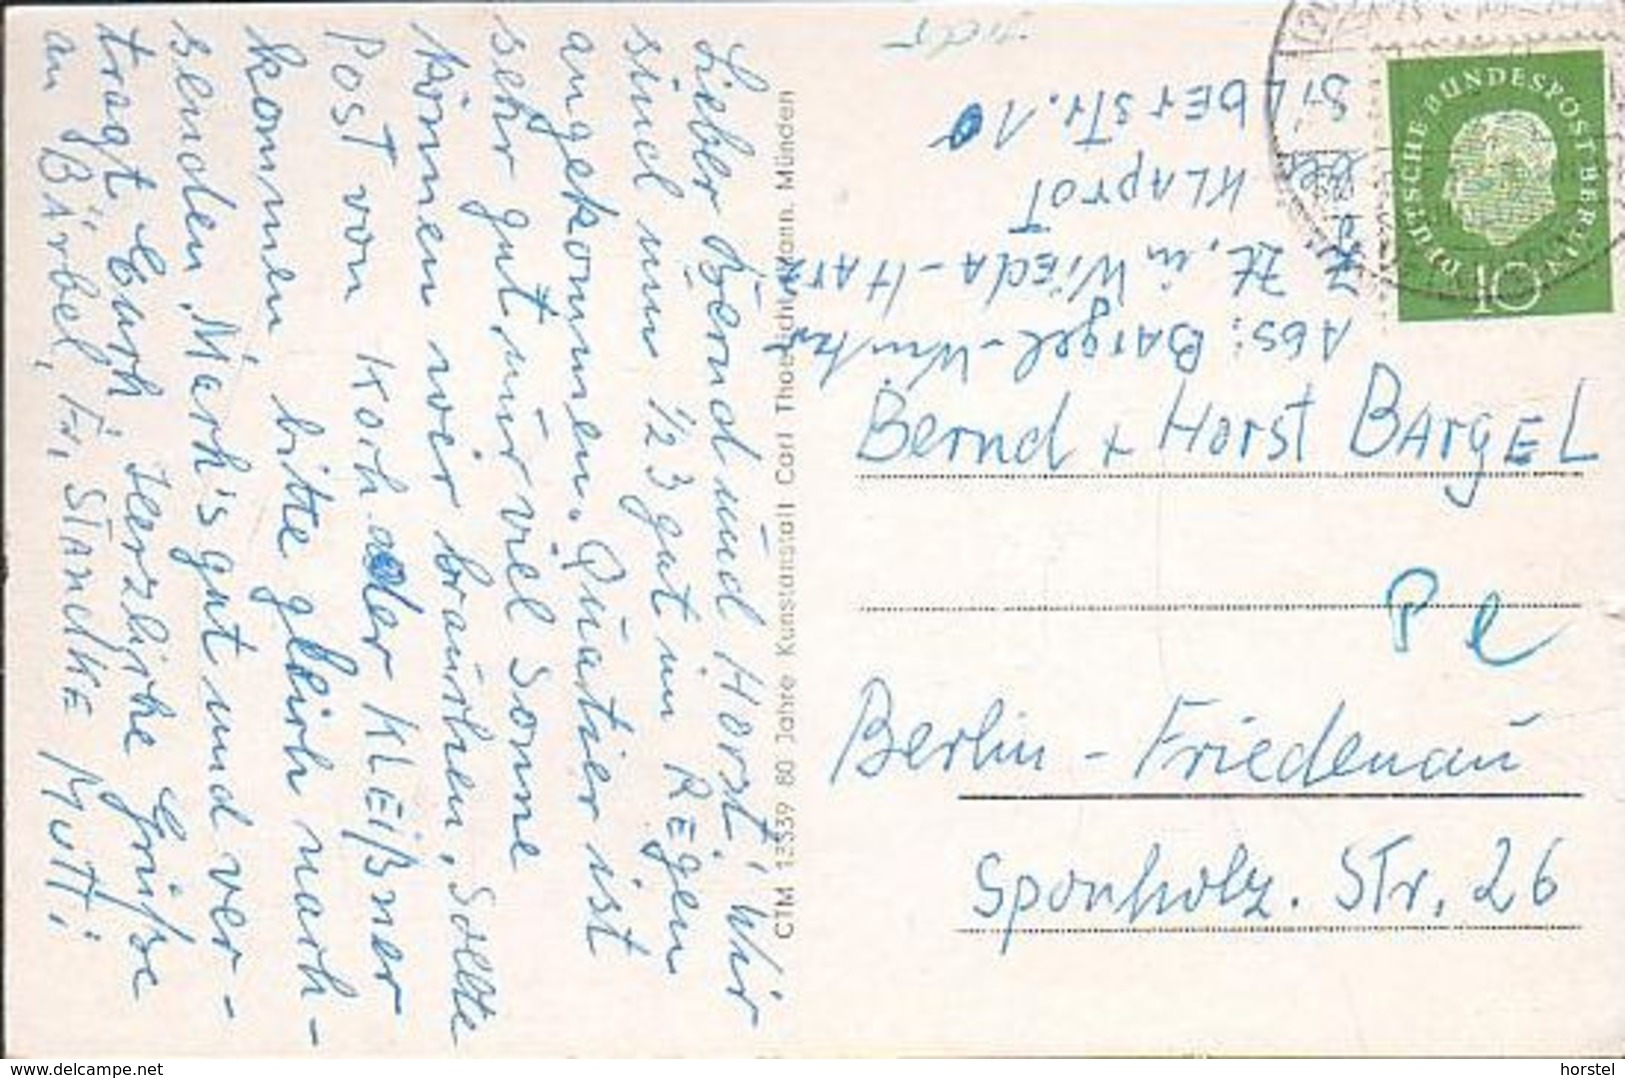 Lieber Bernd und Horst! Wir
sind um 1/2 3 gut im Regen
angekommen. Quatier ist
sehr gut nur viel Sonne
können wir brauchen, sollte
Post von Koch oder KLEißner
kommen, bitte gleich nach-
senden, Mach's gut und ver-
tragt Euch Herzliche Grüße
an Bärbel, Fr. STANCKE Mutti
CTM 13539 80 Jahre Kunstanstalt Carl Thoericht, Hann. Münden
Abs: BARGEL
Zt. in WIEdA-HArz
KLAPrOT
SiLbErSTr. 10
DEUTSCHE BUNDESPOST BERLIN
10
Bernd + Horst BARgEL
Pe
Berlin - Friedenau
Sponholz. STr. 26
horstel